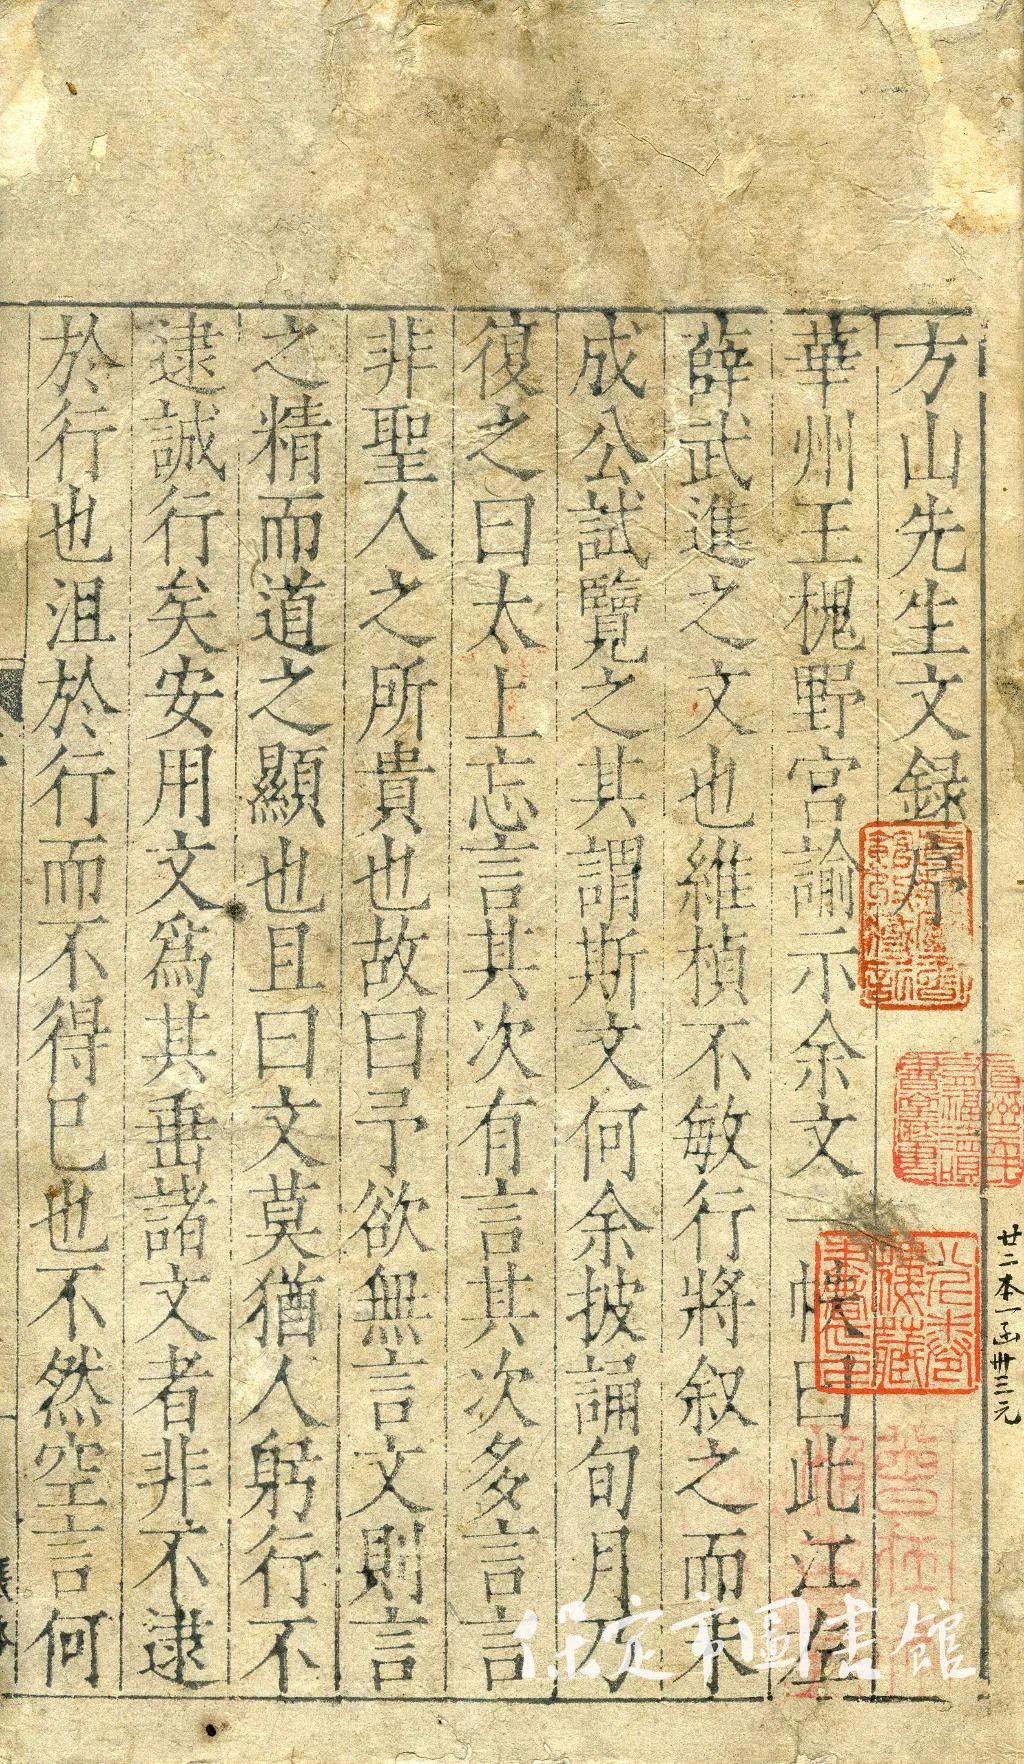 方山先生文録序
華州王槐野宮諭示余文一帙曰此江左
薛武進之文也維楨不敏行將叙之而未
成公試覽之其謂斯文何余披誦旬月乃
復之曰太上忘言其次有言其次多言言
非聖人之所貴也故曰予欲無言文則言
之精而道之顯也且曰文莫猶人躬行不
逮誠行矣安用文爲其垂諸文者非不逮
於行也沮於行而不得已也不然空言何
廿二本一函卅三元
保定市圖書館